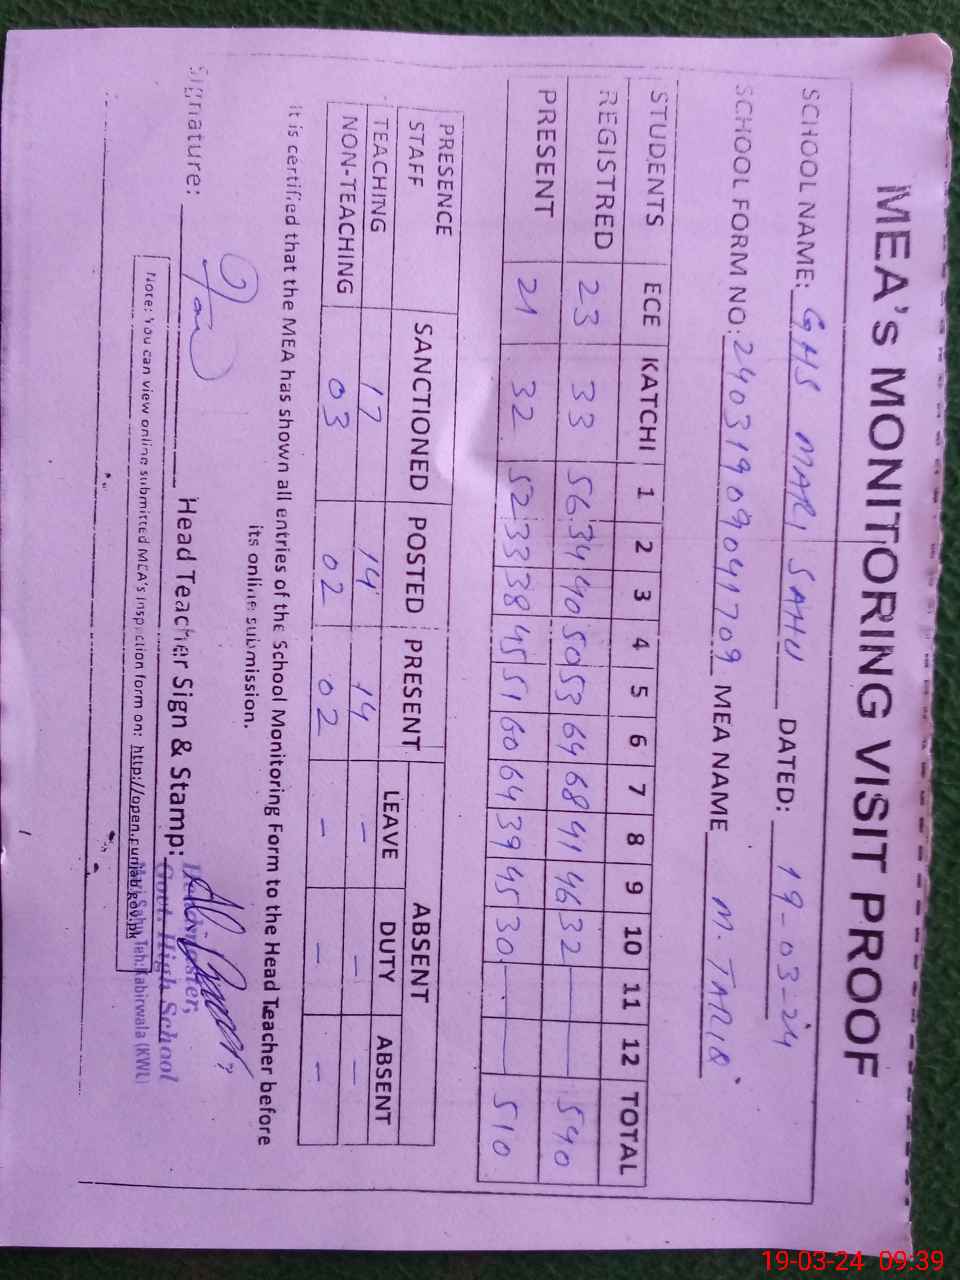 MEA's MONITORING VISIT PROOF
SCHOOL NAME: GHS MARI SAHU DATED: 19-03-24
SCHOOL FORM NO: 240319090941709 MEA NAME M. TARIQ
STUDENTS ECE KATCHI 1 2 3 4 5 6 7 8 9 10 11 12 TOTAL
REGISTRED 23 33 56 34 40 50 53 64 68 41 46 32 — — 540
PRESENT 21 32 52 33 38 45 51 60 64 39 45 30 — — 510
PRESENCE STAFF SANCTIONED POSTED PRESENT ABSENT
LEAVE DUTY ABSENT
TEACHING 17 14 14 - - -
NON-TEACHING 03 02 02 - - -
It is certified that the MEA has shown all entries of the School Monitoring Form to the Head Teacher before
its online submission.
Signature: Head Teacher Sign & Stamp:
Headmaster,
Govt. High School
Mari Sahu Teh: Kabirwala (KWL)
Note: You can view online submitted MEA's Inspection form on: http://open.punjab.gov.pk
19-03-24 09:39